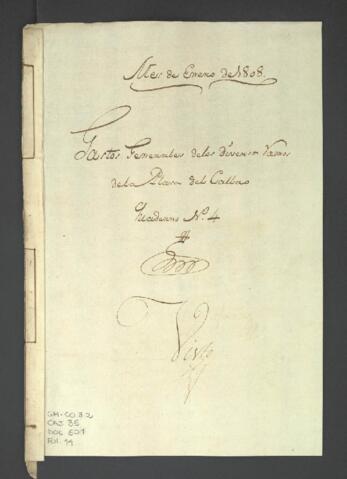 Mes de Enero de 1808.
Gastos Semanales de los Diversos Ramos
de la Plaza del Callao
Quaderno N.º 4
Visto
GM-CO 3.2
CAJ. 35
DOC 501
Fol. 14